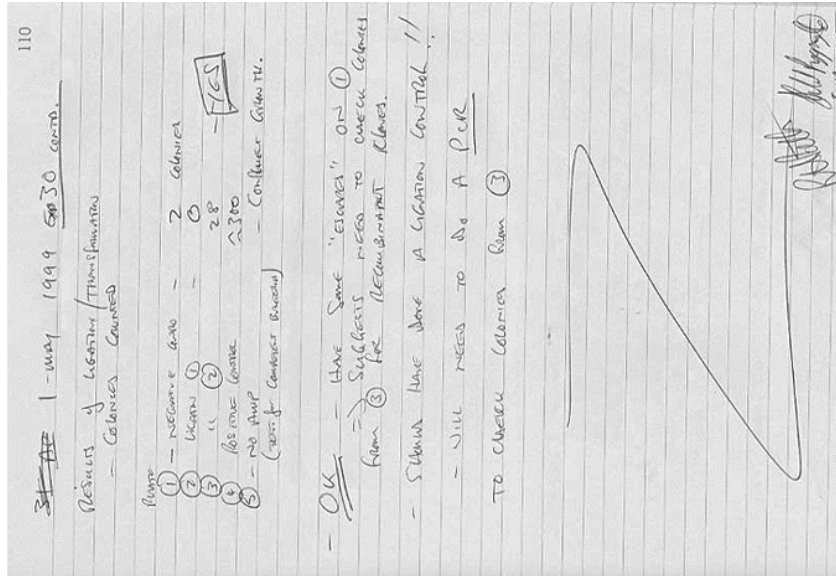 110
1-MAY 1999 30 CONTD.
RESULTS of LIGATION/TRANSFORMATION
- COLONIES COUNTED
PLATE
① - NEGATIVE CONTROL - 2 COLONIES
② LIGATION ① - 0
③ " ② 28 - YES
④ POSITIVE CONTROL ~300
⑤ - NO AMP - CONFLUENT GROWTH.
(TEST for COMPETENT BACTERIA)
- OK - HAVE SOME "ESCAPES" ON ①
⇒ SUGGESTS NEED TO CHECK COLONIES
FROM ③ FOR RECOMBINANT CLONES.
- SHOULD HAVE DONE A LIGATION CONTROL!!
- WILL NEED TO DO A PCR
TO CHECK COLONIES FROM ③